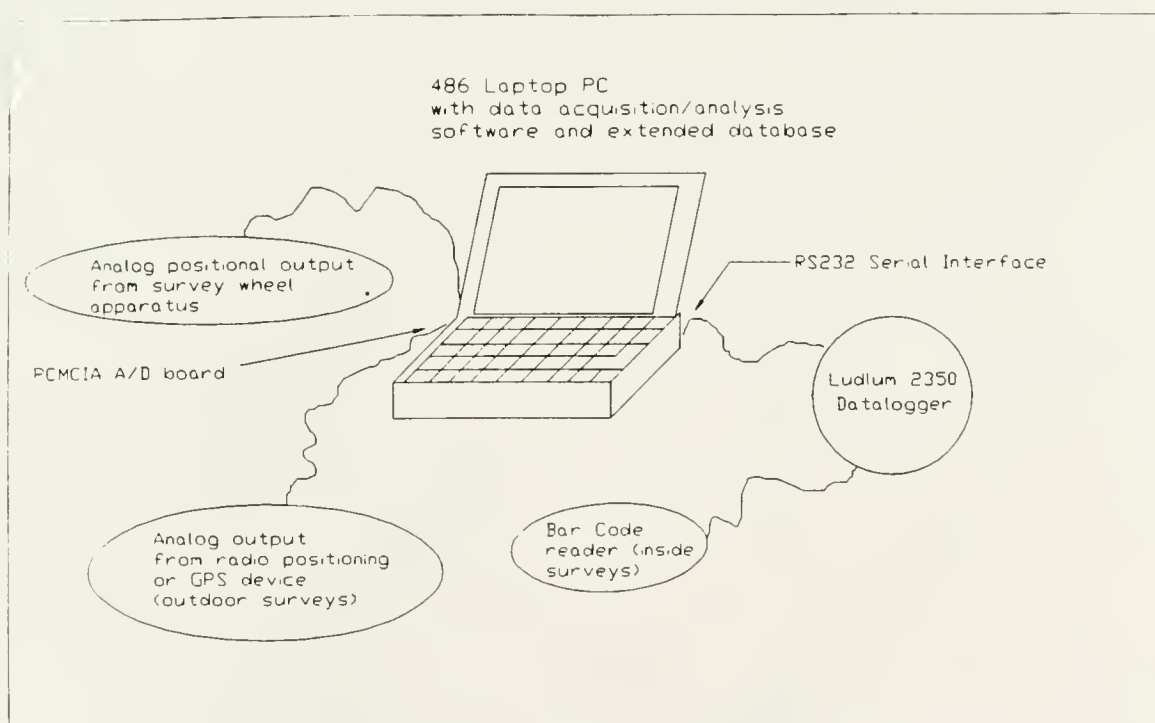 486 Laptop PC
with data acquisition/analysis
software and extended database
Analog positional output
from survey wheel
apparatus
RS232 Serial Interface
PCMCIA A/D board
Ludlum 2350
Datalogger
Analog output
from radio positioning
or GPS device
(outdoor surveys)
Bar Code
reader (inside
surveys)